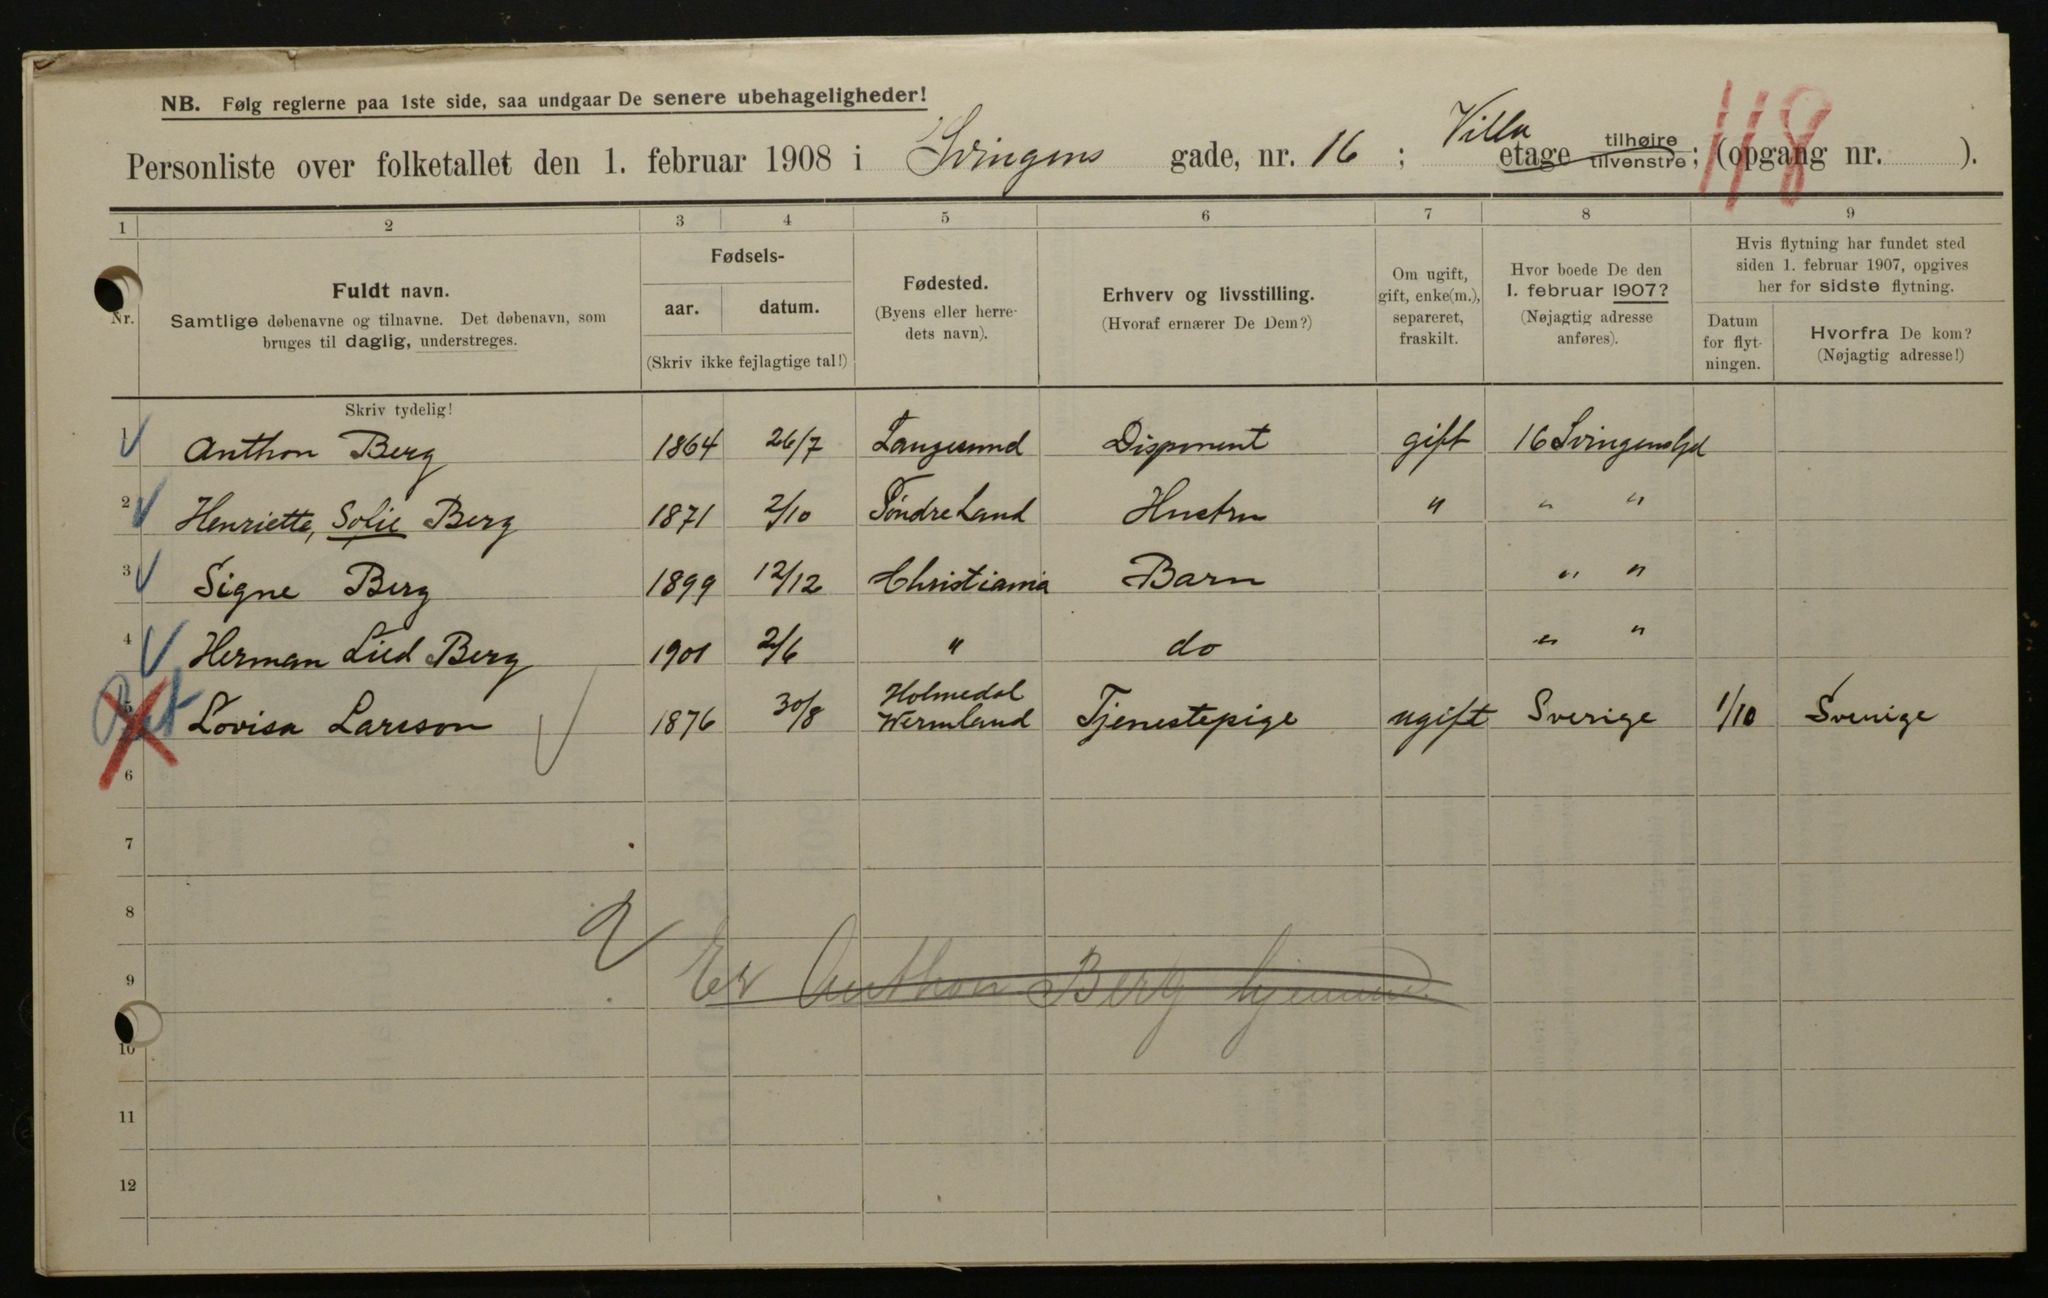 NB. Følg reglerne paa 1ste side, saa undgaar De senere ubehageligheder!
Personliste over folketallet den 1. februar 1908 i Svingens gade, nr. 16 ; Villa etage tilhøire tilvenstre ; (opgang nr. ).
118
1 2 3 4 5 6 7 8 9
Nr.
Fuldt navn.
Samtlige døbenavne og tilnavne. Det døbenavn, som
bruges til daglig, understreges.
Skriv tydelig!
Fødsels-
aar. datum.
(Skriv ikke fejlagtige tal!)
Fødested.
(Byens eller herre-
dets navn).
Erhverv og livsstilling.
(Hvoraf ernærer De Dem?)
Om ugift,
gift, enke(m.),
separeret,
fraskilt.
Hvor boede De den
1. februar 1907?
(Nøjagtig adresse
anføres).
Hvis flytning har fundet sted
siden 1. februar 1907, opgives
her for sidste flytning.
Datum
for flyt-
ningen.
Hvorfra De kom?
(Nøjagtig adresse!)
1 Anthon Berg 1864 26/7 Langesund Disponent gift 16 Svingensgd
2 Henriette, Solie Berg 1871 2/10 Søndre Land Hustru " " "
3 Signe Berg 1899 12/12 Christiania Barn " "
4 Herman Lied Berg 1901 2/6 " do " "
5 Lovisa Larsson 1876 30/8 Holmedal Wermland Tjenestepige ugift Sverige 1/10 Sverige
6
7
8
9 Er Anthon Berg hjemme.
10
11
12